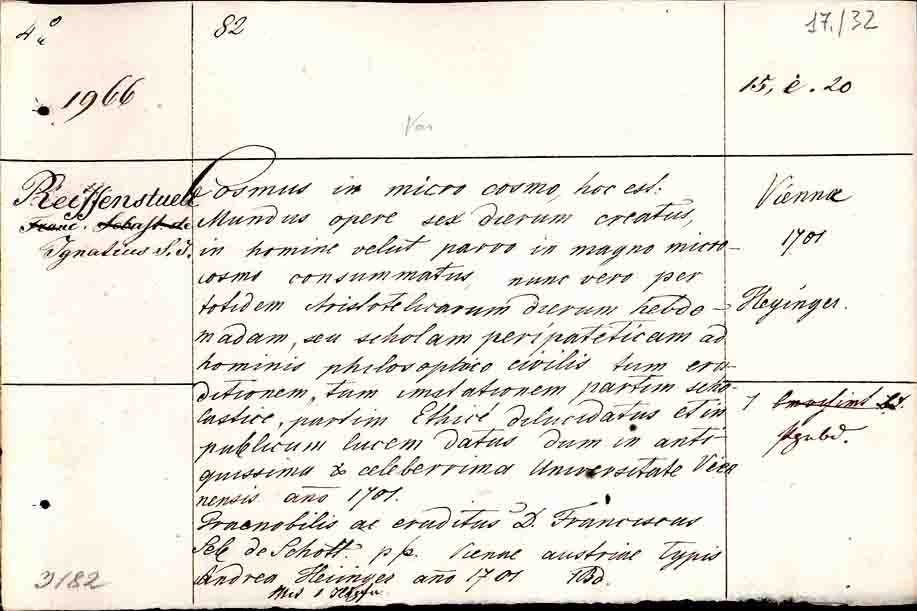 4°
82
17./32
1966
15, e. 20
Reiffenstuell
Franc. Sebast. de
Ignatius S. J.
Cosmus in micro cosmo, hoc est:
Mundus opere sex dierum creatus,
in homine velut parvo in magno micro-
cosmo consummatus, nunc vero per
totidem Aristotelicarum dierum hebdo-
madam, seu scholam peripateticam ad
hominis philosophico civilis tum eru-
ditionem, tum
partim scho-
lastice, partim Ethicé dilucidatus et in
publicum lucem datus dum in anti-
quissima & celeberrima Universitate Vien
nensis año 1701.
Praenobilis ac eruditus D. Franciscus
Seb de Schott. p p. Vienae austriae Typis
Andrea Heiinger año 1701 1 Bd.
Viennæ
1701
Heyinger.
1
Pgubd.
3182